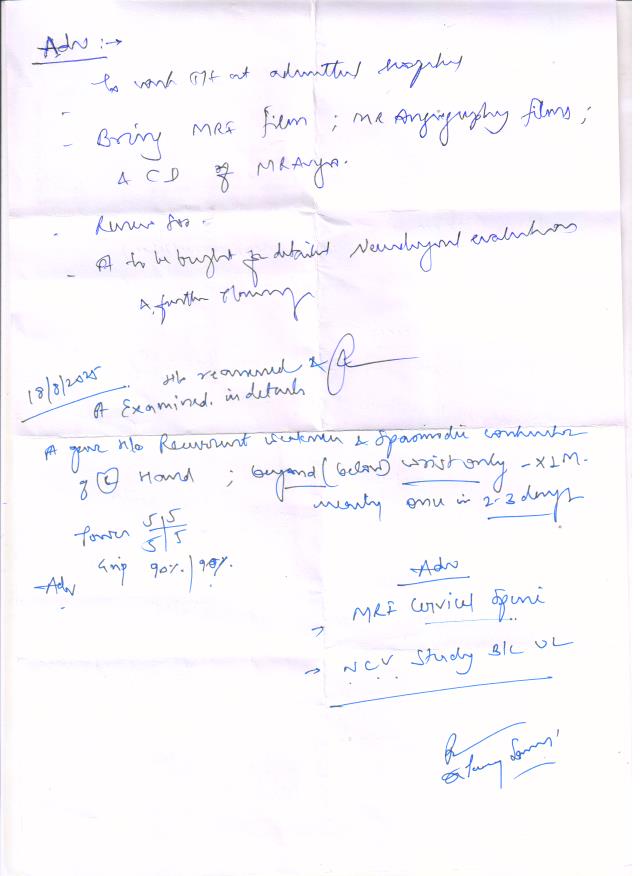 Adv :→
To cont T/t at admitted hospital
- Bring MRI film ; MR Angiography films ;
& CD of MR Angio.
- Review SOS.
- Pt to be bought for detailed Neurological evaluations
& further planning
18/8/2025 H/o reassessed &
Pt Examined. in details
Pt gave H/o Recurrent weakness & Spasmodic contraction
of (L) Hand ; beyond (below) wrist only - x 1 M.
nearly once in 2-3 days
Power 5|5
5|5
Grip 90% | 90%.
Adv
Adv
MRI Cervical Spine
→ NCV Study B/L UL